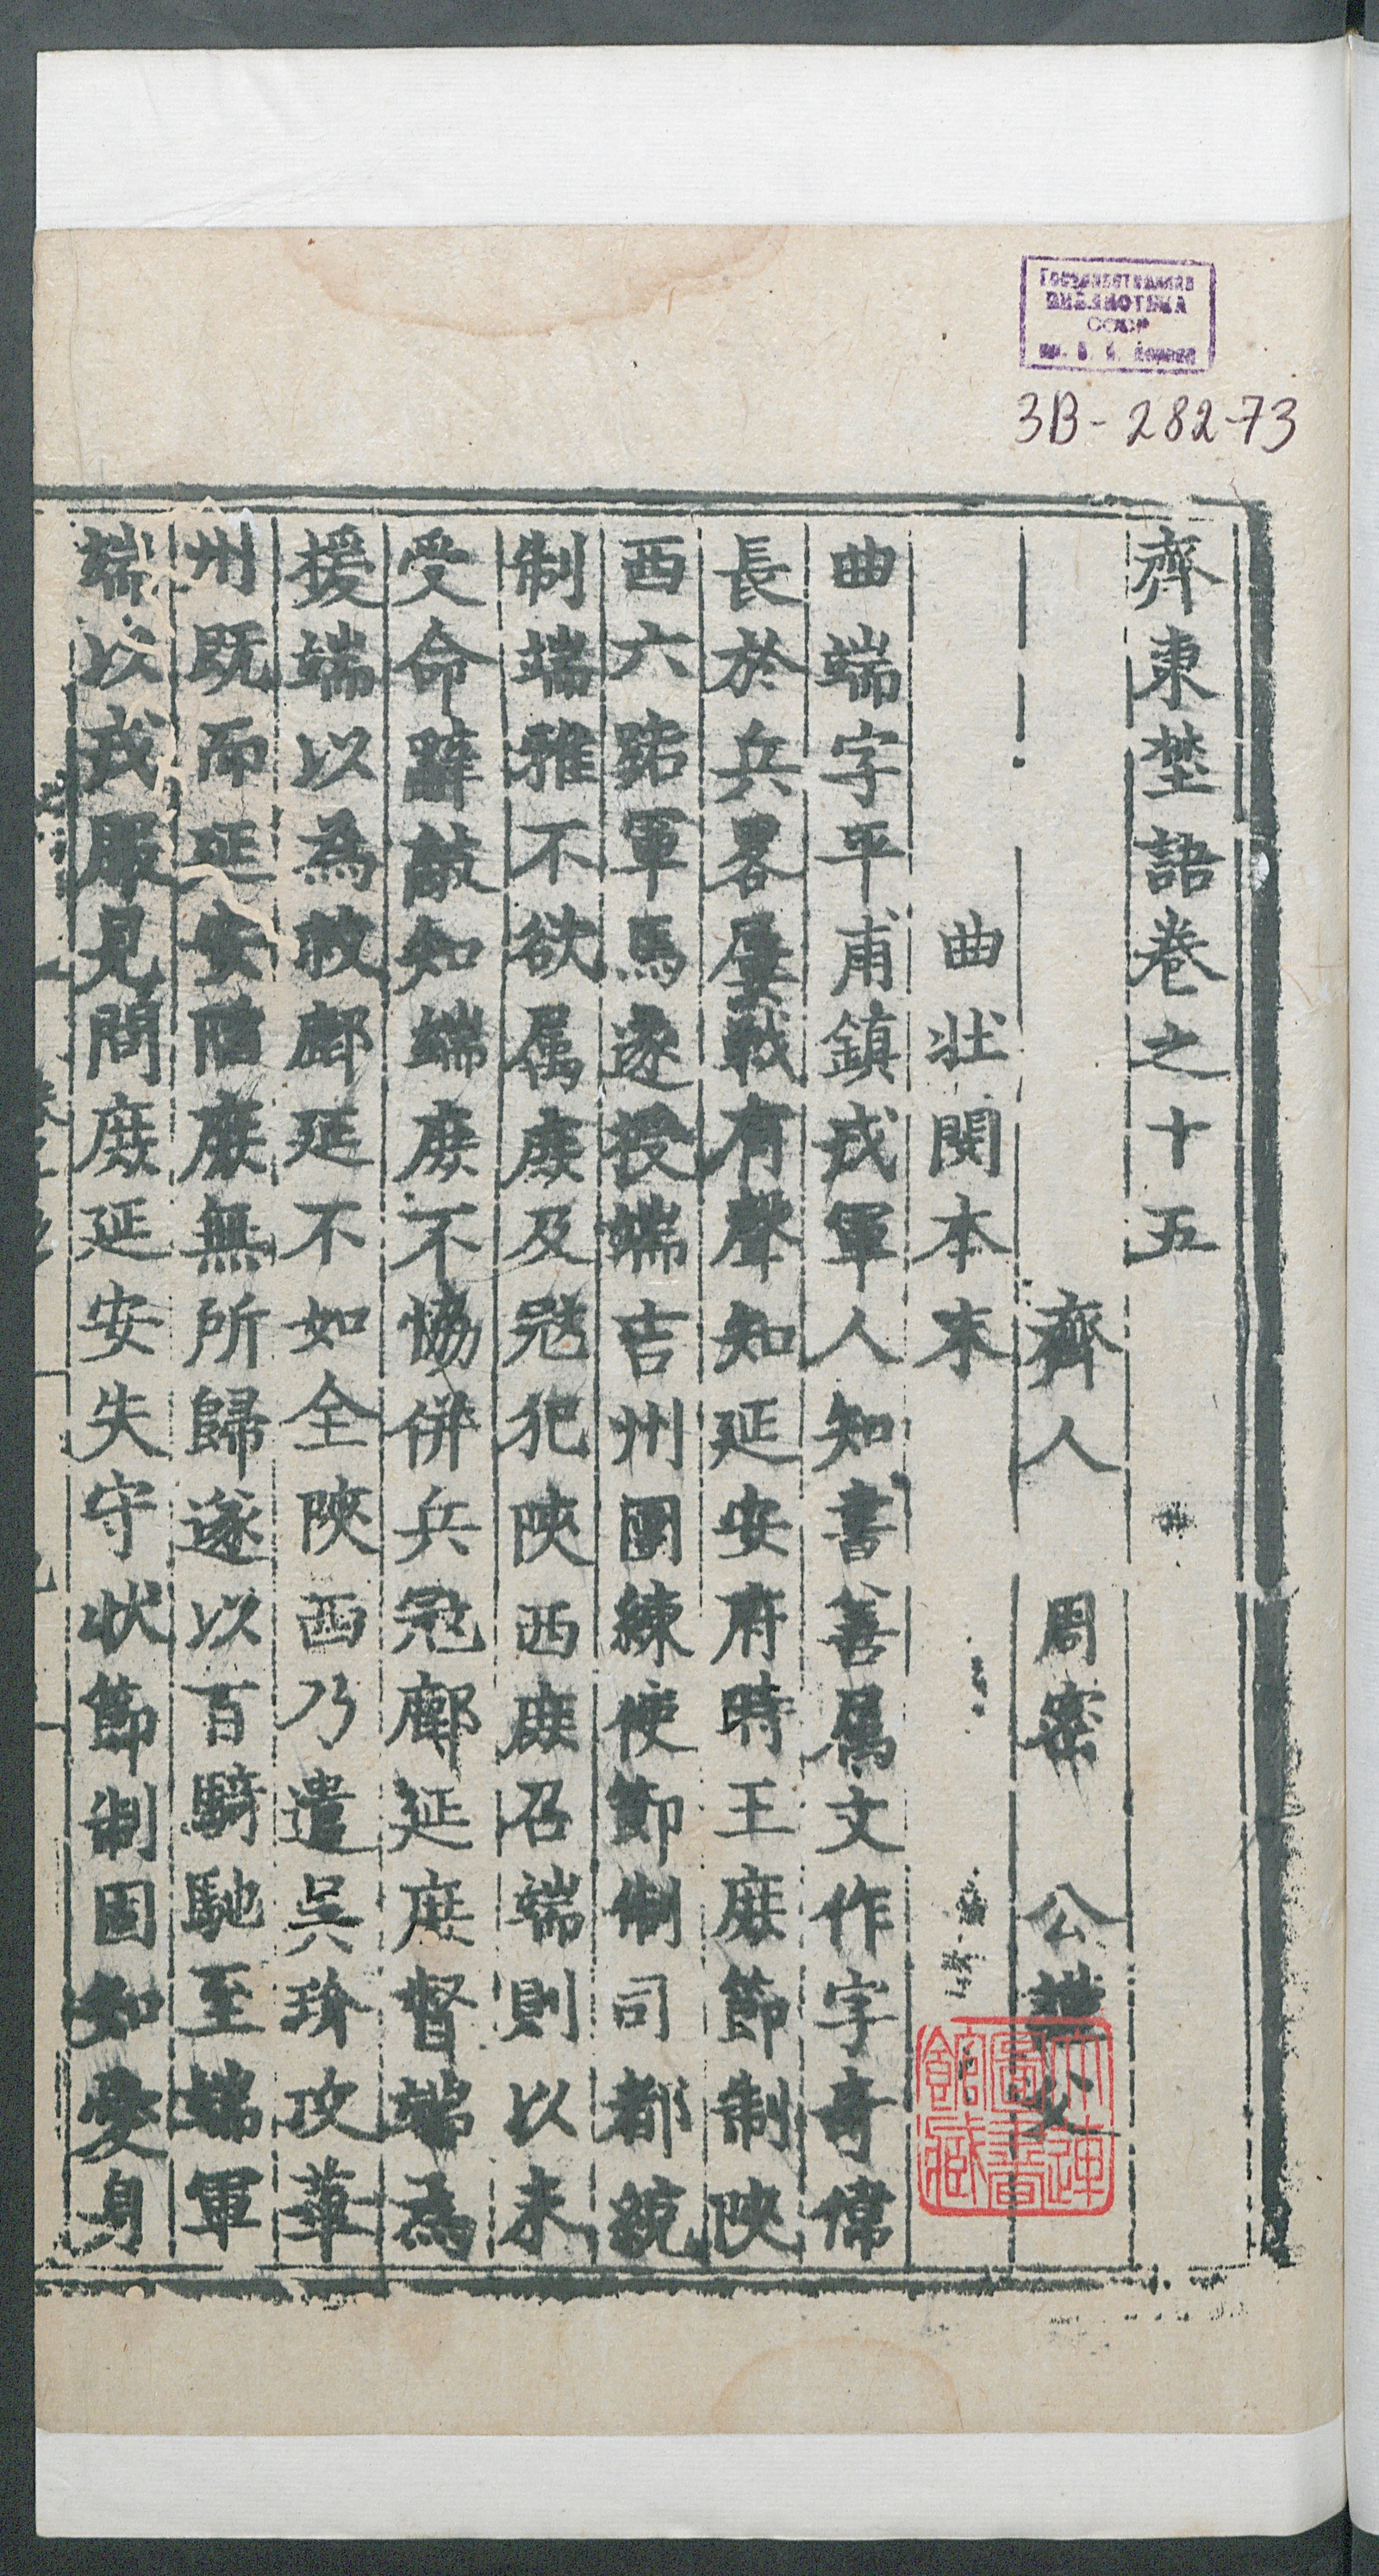 Государственная
БИБЛИОТЕКА
СССР
им. В. И. Ленина
3В-282-73
齊東埜語卷之十五
齊人 周密 公謹
曲壯閔本末
曲端字平甫鎮戎軍人知書善属文作字奇偉
長於兵畧屢戰有聲知延安府時王庶節制陝
西六路軍馬遂授端吉州團練使節制司都統
制端雅不欲属庶及冦犯陝西庶召端則以未
受命辭敵知端庶不恊併兵冦鄜延庶督端為
援端以為救鄜延不如全陝西乃遣吳玠攻華
州既而延安陷庶無所歸遂以百騎馳至端軍
端以戎服見問庶延安失守状節制固知愛身
大連圖書館藏